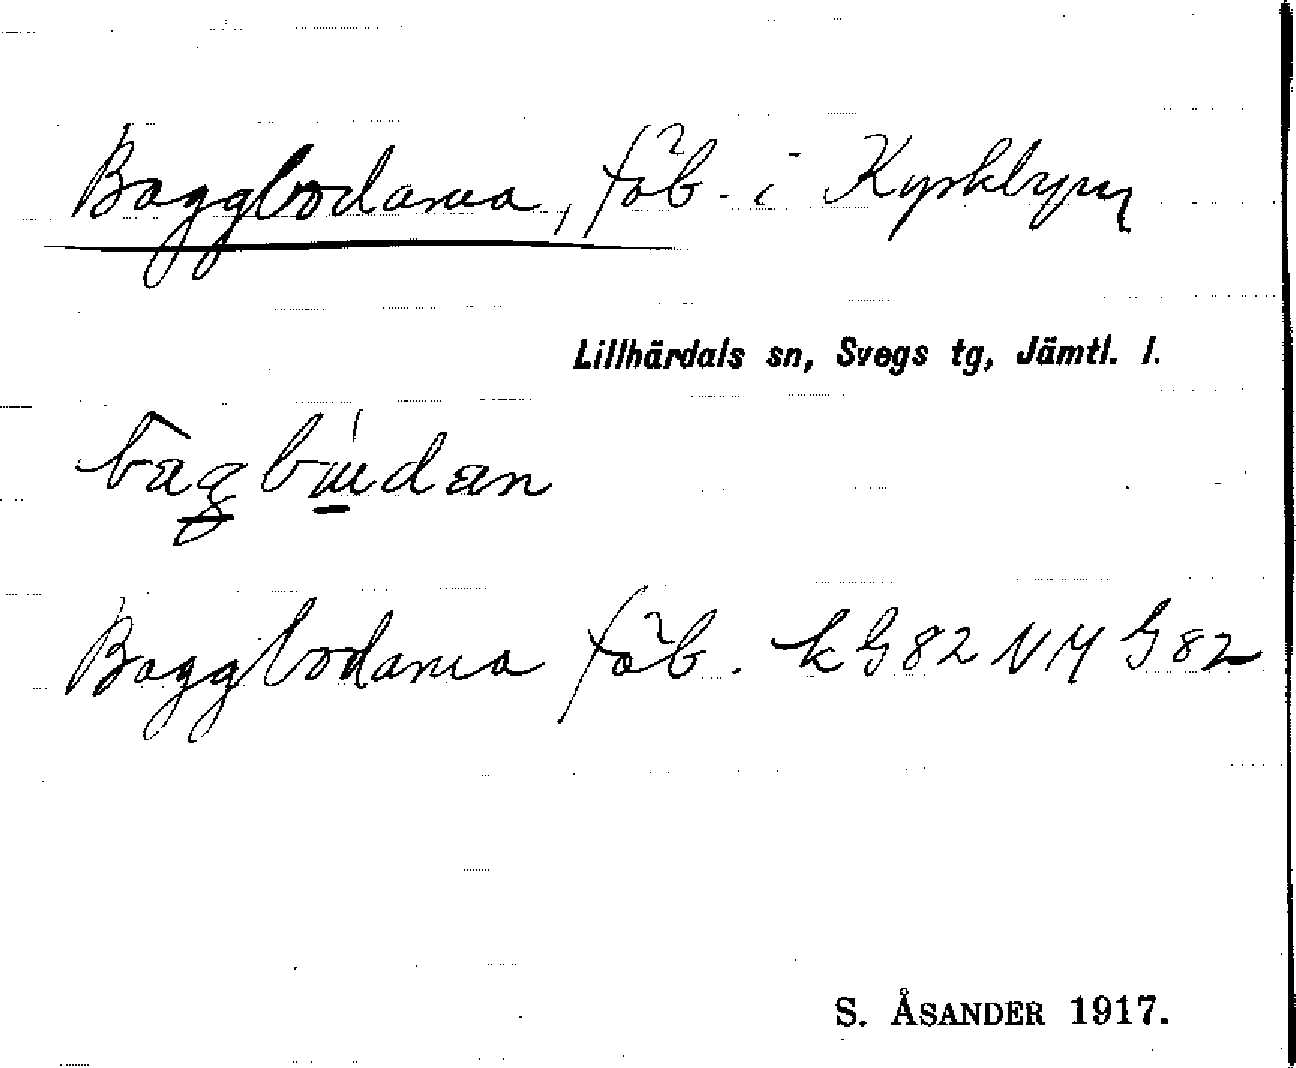 Baggbodarna, fäb. i Kyrkbyn
Lillhärdals sn, Svegs tg, Jämtl. l.
Baggbodarna fäb. kG82NMG82
S. ÅSANDER 1917.